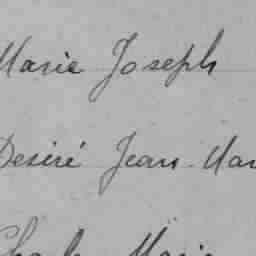 Marie Joseph
Desiré Jean Mar
Charles Marie